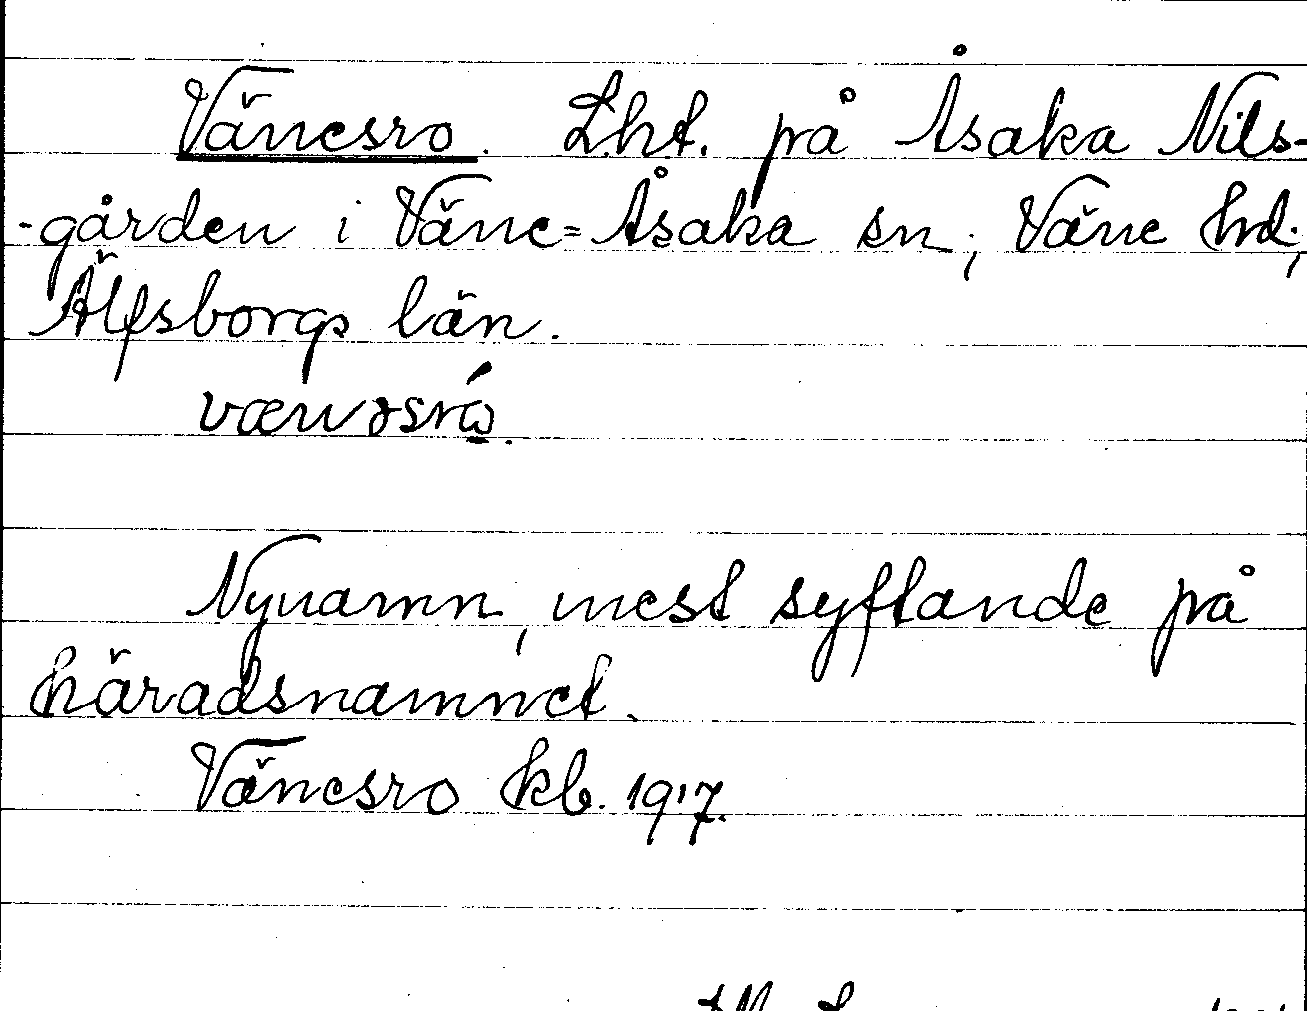 Vänesro. Lht. på Åsaka Nils-
-gården i Väne=Åsaka sn, Väne hd,
Älfsborgs län.
Nynamn, mest syftande på
häradsnamnet.
Vänesro kb. 1917.